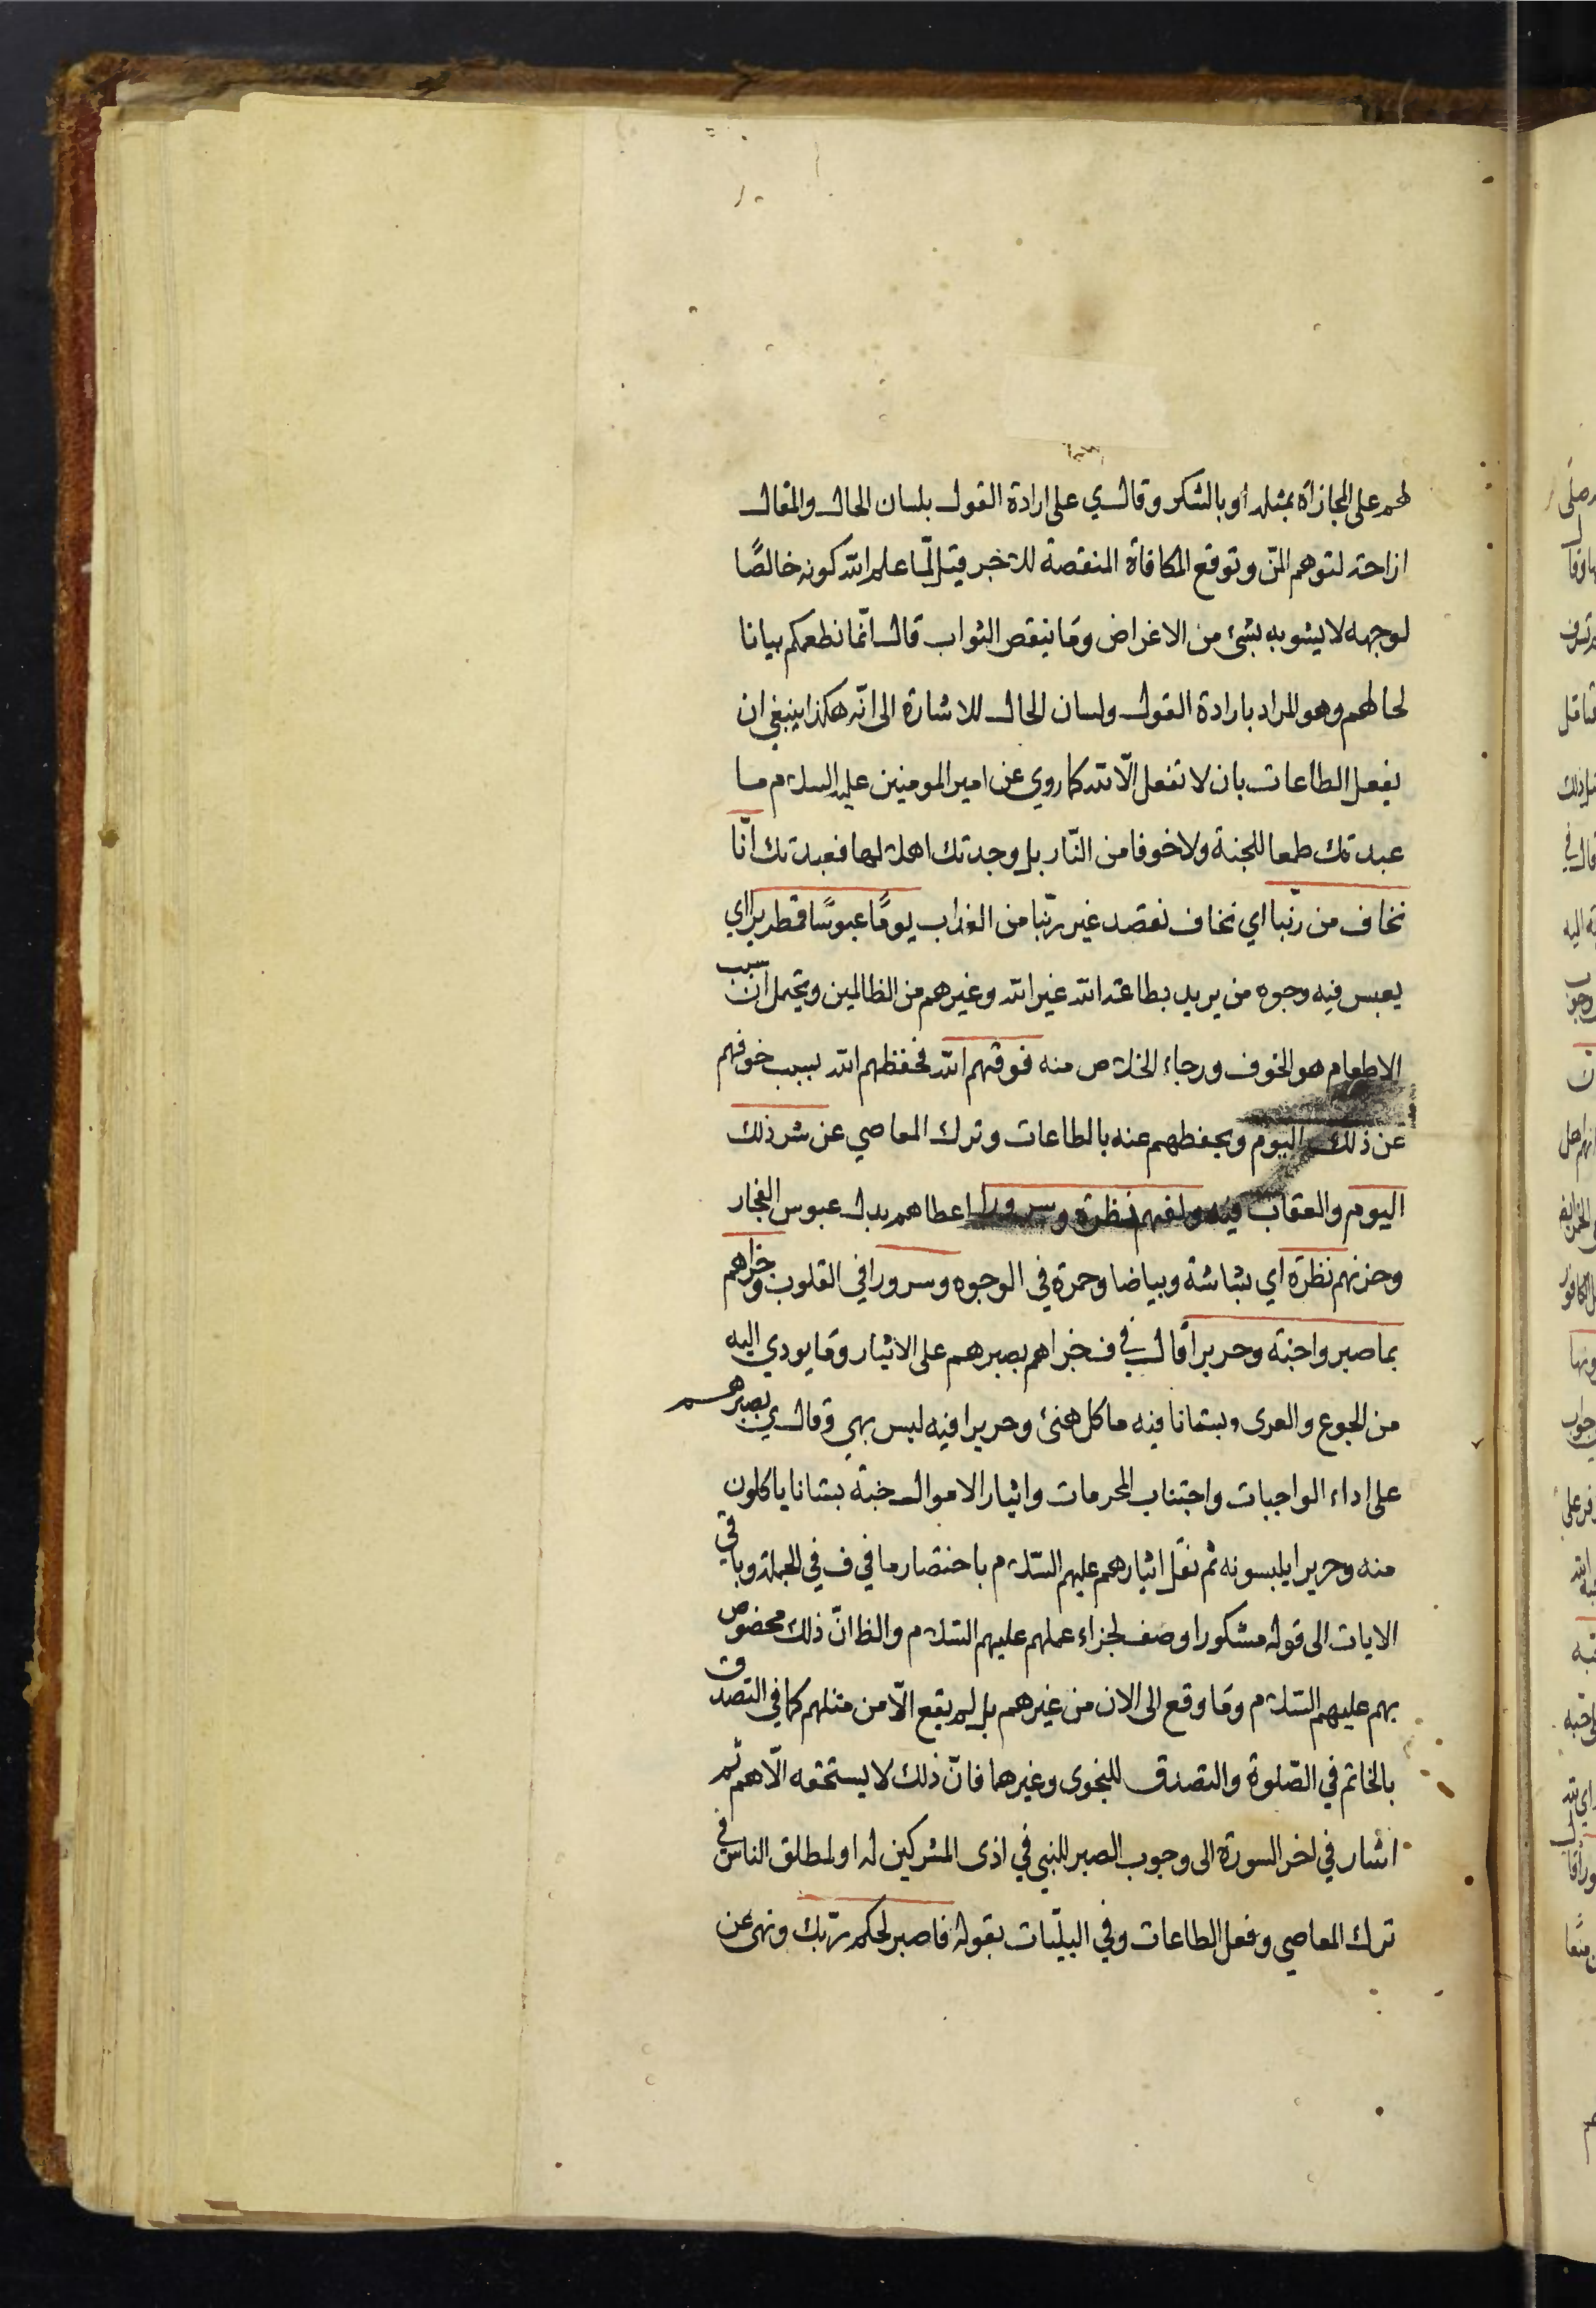 لهم على المجازاة بمثله أو بالشكر وقال ي على ارادة القول بلسان الحال والمقال
ازاحة لتوهم المنّ وتوقع المكافاة المنقصة للاخبر قيل لمّا علم الله كونه خالصًا
لوجهه لا يشوبه بشئ من الاغراض وما ينقص الثواب قال انّما نطعمكم بيانا
لحالهم وهو المراد بارادة القول ولسان الحال للاشارة الى انّه هكذا ينبغي ان
يفعل الطاعات بان لا تفعل الّا لله كما روي عن امير المومنين عليه السلام ما
عبدتك طمعا للجنة ولا خوفا من النّار بل وجدتك اهلا لها فعبدتك انّا
نخاف من ربّنا اي نخاف نقصد غير ربّنا من العذاب يومًا عبوسًا قمطريرا اي
يعبس فيه وجوه من يريد بطاعة الله غير الله وغيرهم من الظالمين ويحتمل ان سبب
الاطعام هو الخوف ورجاء الخلاص منه فوقيهم الله فحفظهم الله بسبب خوفهم
عن ذلك اليوم ويحفظهم عنه بالطاعات وترك المعاصي عن شر ذلك
اليوم والعقاب فيه ولقهم نظرة وسرورا اعطاهم بدل عبوس الفجار
وحزنهم نظرة اي بشاشة وبياضا وحمرة في الوجوه وسرورا في القلوب وجزاهم
بما صبروا جنة وحريرا قال في ف جزاهم بصبرهم على الايثار وما يودي اليه
من الجوع والعرى وبستانا فيه ماكل هنئ وحريرا فيه لبس بهي وقال ي بصبرهم
على اداء الواجبات واجتناب المحرمات وايثار الاموال جنة بستانا ياكلون
منه وحريرا يلبسونه ثم نقل ايثارهم عليهم السّلام باختصار ما في ف في الجملة وباقي
الايات الى قوله مشكورا وصف لجزاء عملهم عليهم السّلام والظ انّ ذلك مخصوص
بهم عليهم السّلام وما وقع الى الان من غيرهم بل لم يقع الّا من مثلهم كما في التصدق
بالخاتم في الصّلوة والتصدق للنجوى وغيرهما فانّ ذلك لا يستحقه الّا هم ثم
اشار في اخر السورة الى وجوب الصبر للنبي في اذى المشركين له او لمطلق الناس في
ترك المعاصي وفعل الطاعات وفي البليّات بقوله فاصبر لحكم ربّك ونهى عن